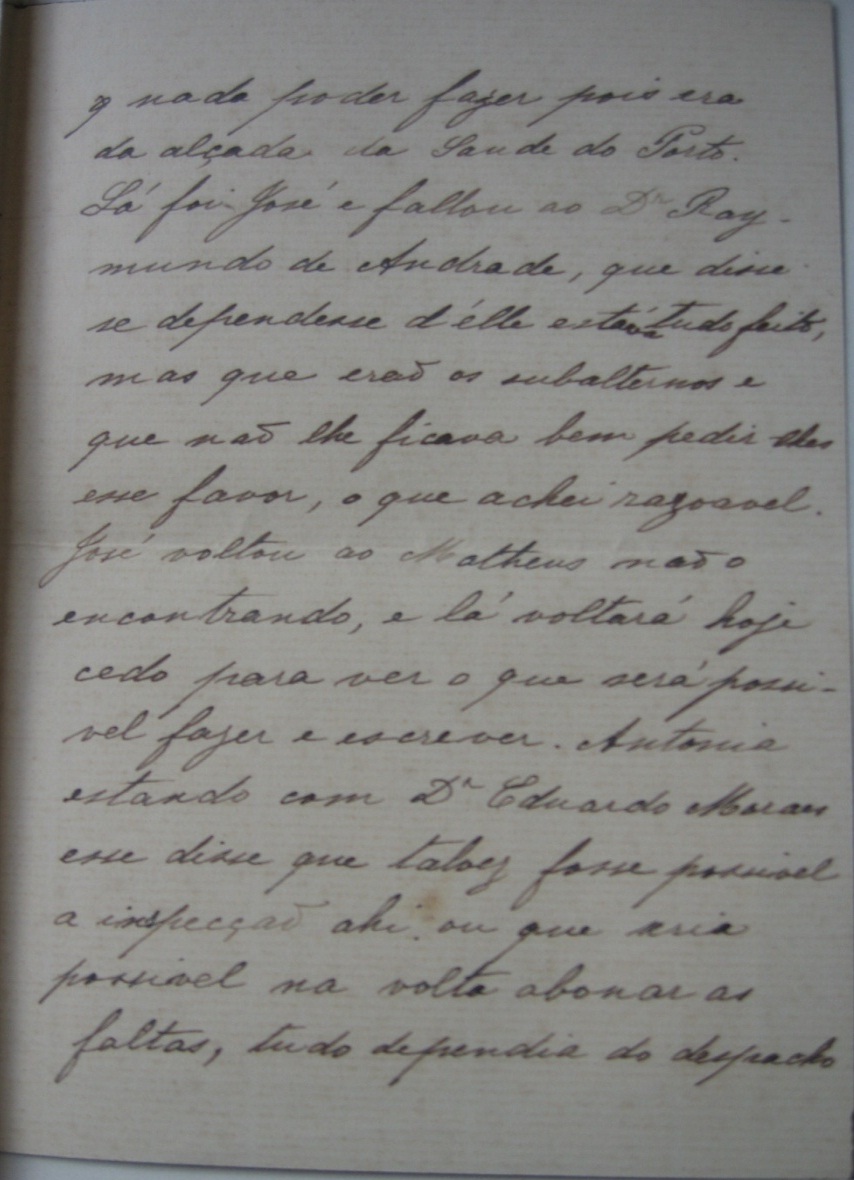 q nada poder fazer pois era
da alçada da Saude do Porto.
Lá foi José e fallou ao Dr Ray-
mundo de Andrade, que disse
se dependesse d'élle estava tudo feito,
mas que eraõ os subalternos e
que naõ lhe ficava bem pedir elles
esse favor, o que achei razoavel.
José voltou ao Matheus naõ o
encontrando, e lá voltará hoje
cedo para ver o que será possi-
vel fazer e escrever. Antonia
estando com Dr Eduardo Moraes
esse disse que talvez fosse possivel
a inspecçaõ ahi ou que seria
possivel na volta abonar as
faltas, tudo dependia do despacho